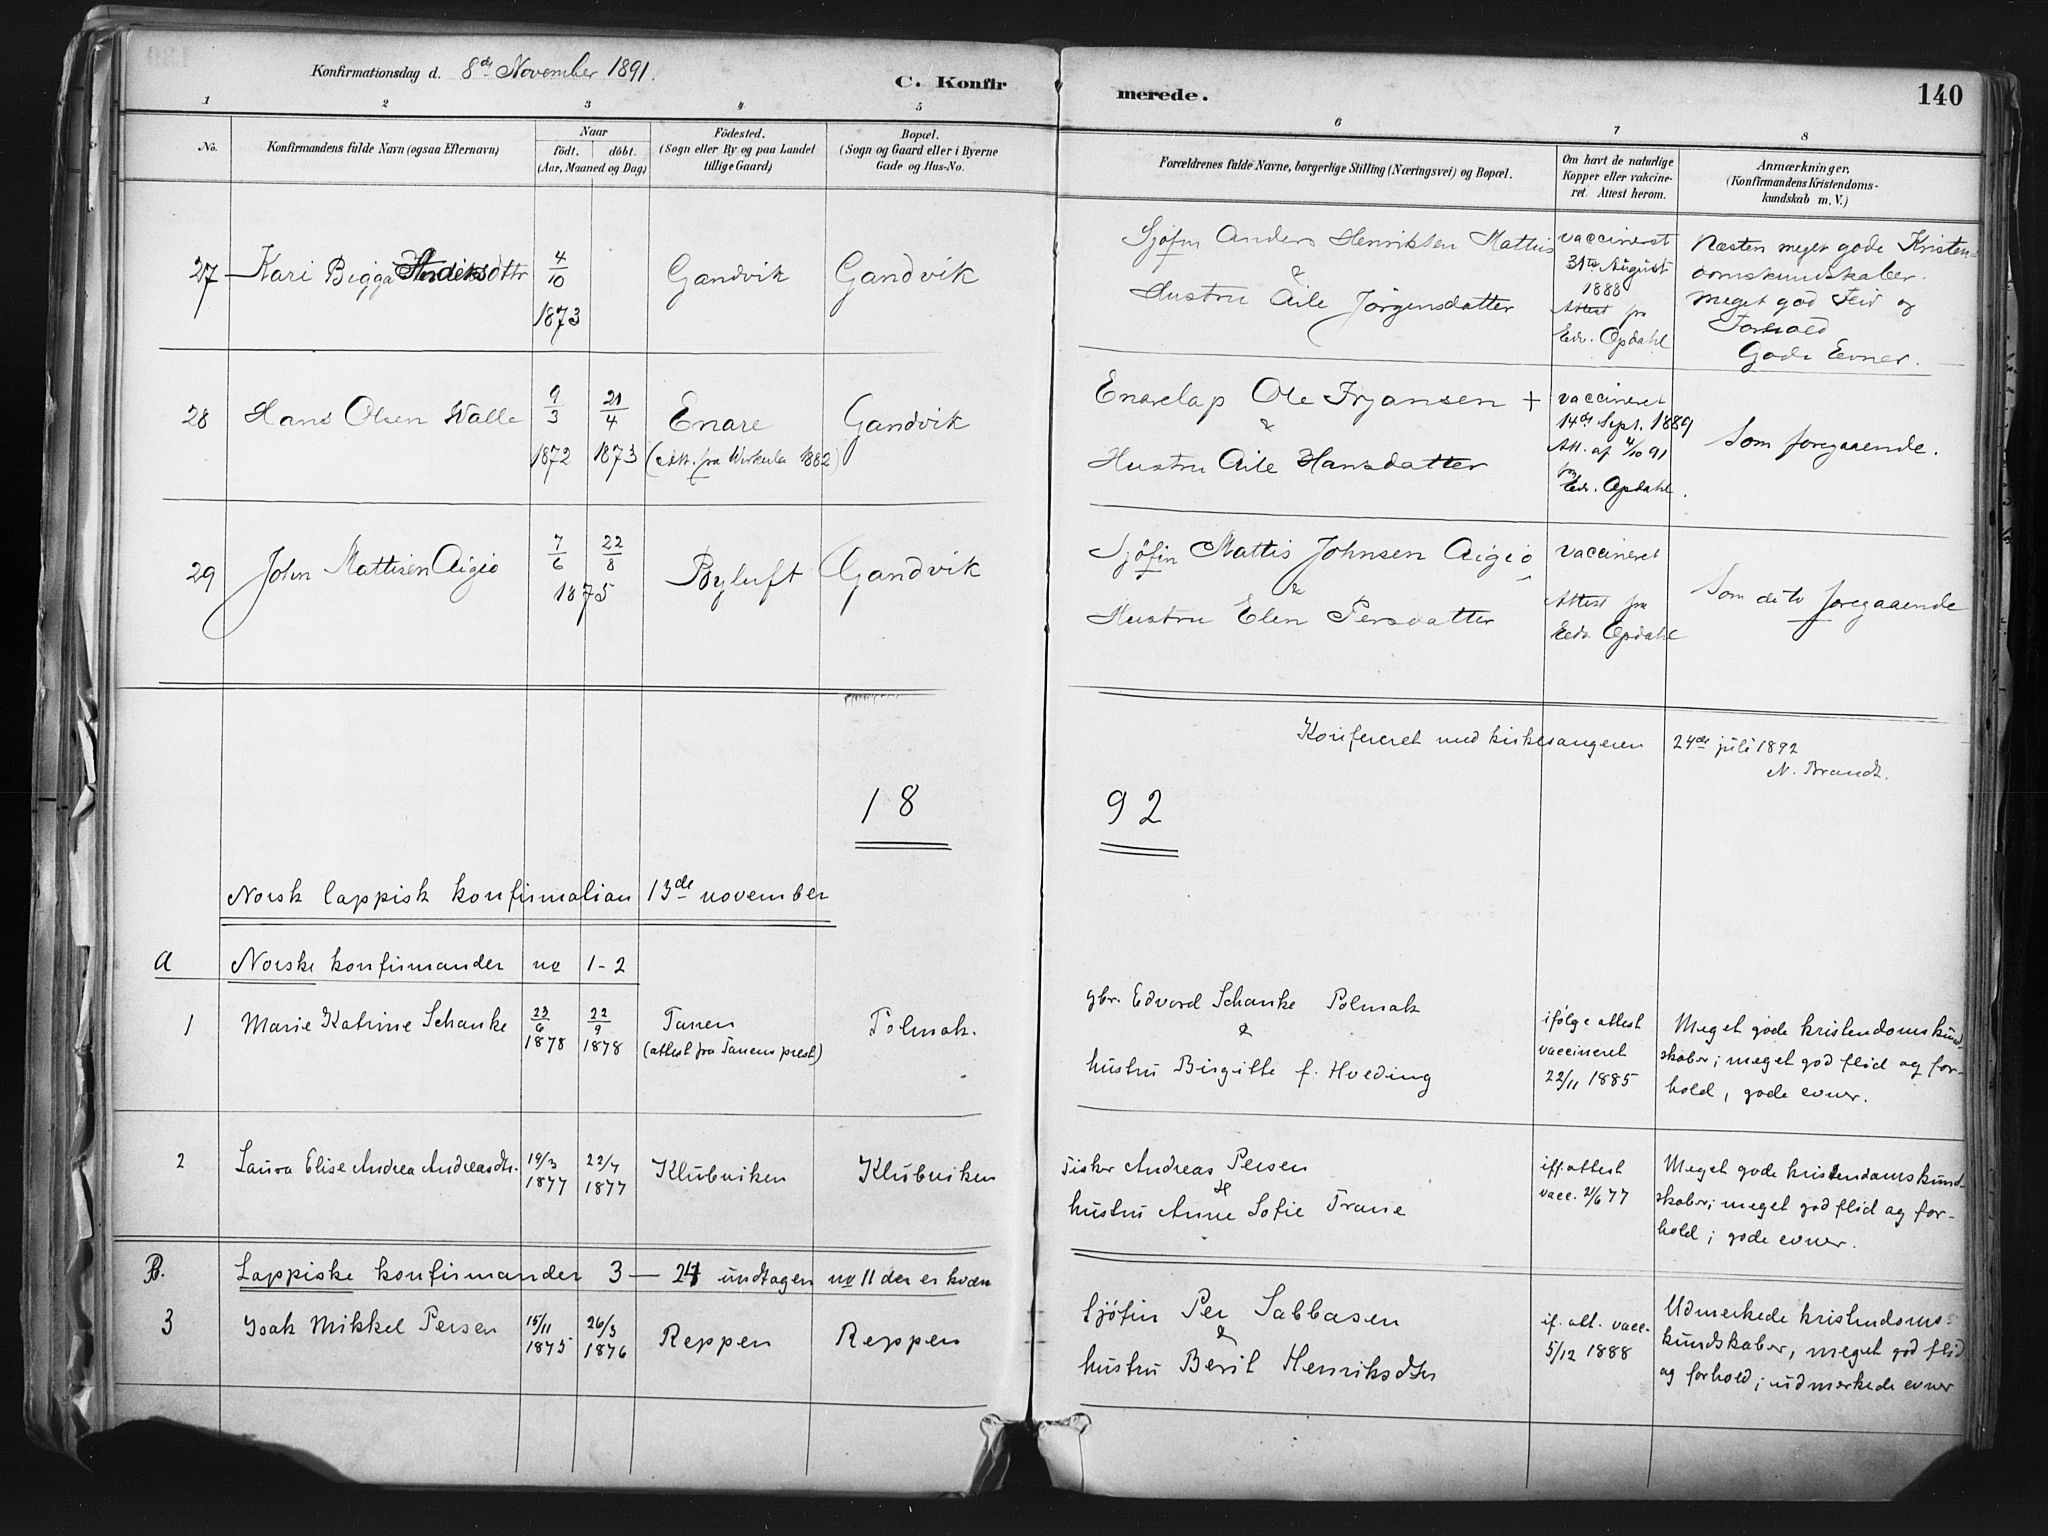 Konfirmationsdag d. 8de November 1891.
C. Konfirmerede.
140
1 2 3 4 5 6 7 8
No.
Konfirmandens fulde Navn (ogsaa Efternavn)
Naar
födt. döbt.
(Aar, Maaned og Dag)
Födested.
(Sogn eller By og paa Landet
tillige Gaard)
Bopæl.
(Sogn og Gaard eller i Byerne
Gade og Hus-No.
Forældrenes fulde Navne, borgerlige Stilling (Næringsvei) og Bopæl.
Om havt de naturlige
Kopper eller vakcine-
ret. Attest herom.
Anmærkninger.
(Konfirmandens Kristendoms-
kundskab m. V.)
27 Kari Bigga dttr
4/10
1873
Gandvik
Gandvik
Sjøfin Anders Henriksen Mattis
&
Hustru Aile Jørgensdatter
vaccineret
31te August
1888
Attest fra
Edv. Opdahl
Næsten meget gode Kristen-
domskundskaber.
meget god Flid og
Forhold
Gode Evner.
28 Hans Olsen Walle
9/3 21/4
1872 1873
Enare
(Att. fra 1882)
Gandvik
Enarelap Ole +
&
Hustru Aile Hansdatter
vaccineret
14de Sept. 1889
Att. af 4/10 91
fra
Edv. Opdahl.
Som foregaaende.
29 John Mattisen Aigio
7/6 22/8
1875
Byluft
Gandvik
Sjøfin Mattis Johnsen Aigio
&
Hustru Elen Persdatter
vaccineret
Attest fra
Edv. Opdahl
Som dito foregaaende
Konfereret med kirkesangeren 24de juli 1892
N. Brandt.
18 92
Norsk lappisk konfirmation 13de november
A Norske konfirmander no 1-2
1 Marie Katrine Schanke
23/6 22/9
1878 1878
Tanen
(attest fra Tanens prest)
Polmak.
gbr. Edvard Schanke Polmak
&
hustru Birgitte f. Hveding
ifølge attest
vaccineret
22/11 1885
Meget gode kristendomskund-
skaber; meget god flid og for-
hold, gode evner.
2 Laura Elise Andrea Andreasdtr.
19/3 22/7
1877 1877
Klubviken
Klubviken
Fisker Andreas Persen
&
hustru Anne Sofie Trane
if. attest
vacc. 21/6 77
Meget gode kristendomskund-
skaber; meget god flid og for-
hold; gode evner.
B. Lappiske konfirmander 3 — 24 undtagen no 11 der er kvæn
3 Isak Mikkel Persen
15/11 26/3
1875 1876
Reppen
Reppen
Sjøfin Per Sabbasen
&
hustru Berit Henriksdtr
if. att. vacc.
5/12 1888
Udmerkede kristendoms-
kundskaber, meget god flid
og forhold; udmerkede evner